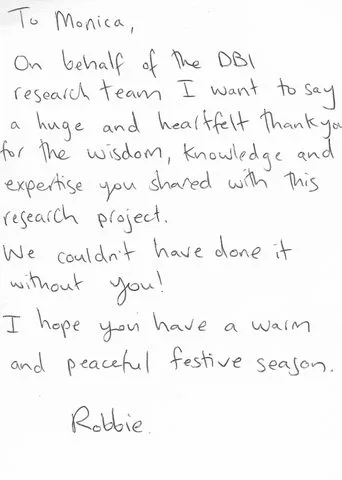 To Monica,
On behalf of the DBI
research team I want to say
a huge and heartfelt thankyo
for the wisdom, knowledge and
expertise you shared with this
research project.
We couldn't have done it
without you!
I hope you have a warm
and peaceful festive season.
Robbie.